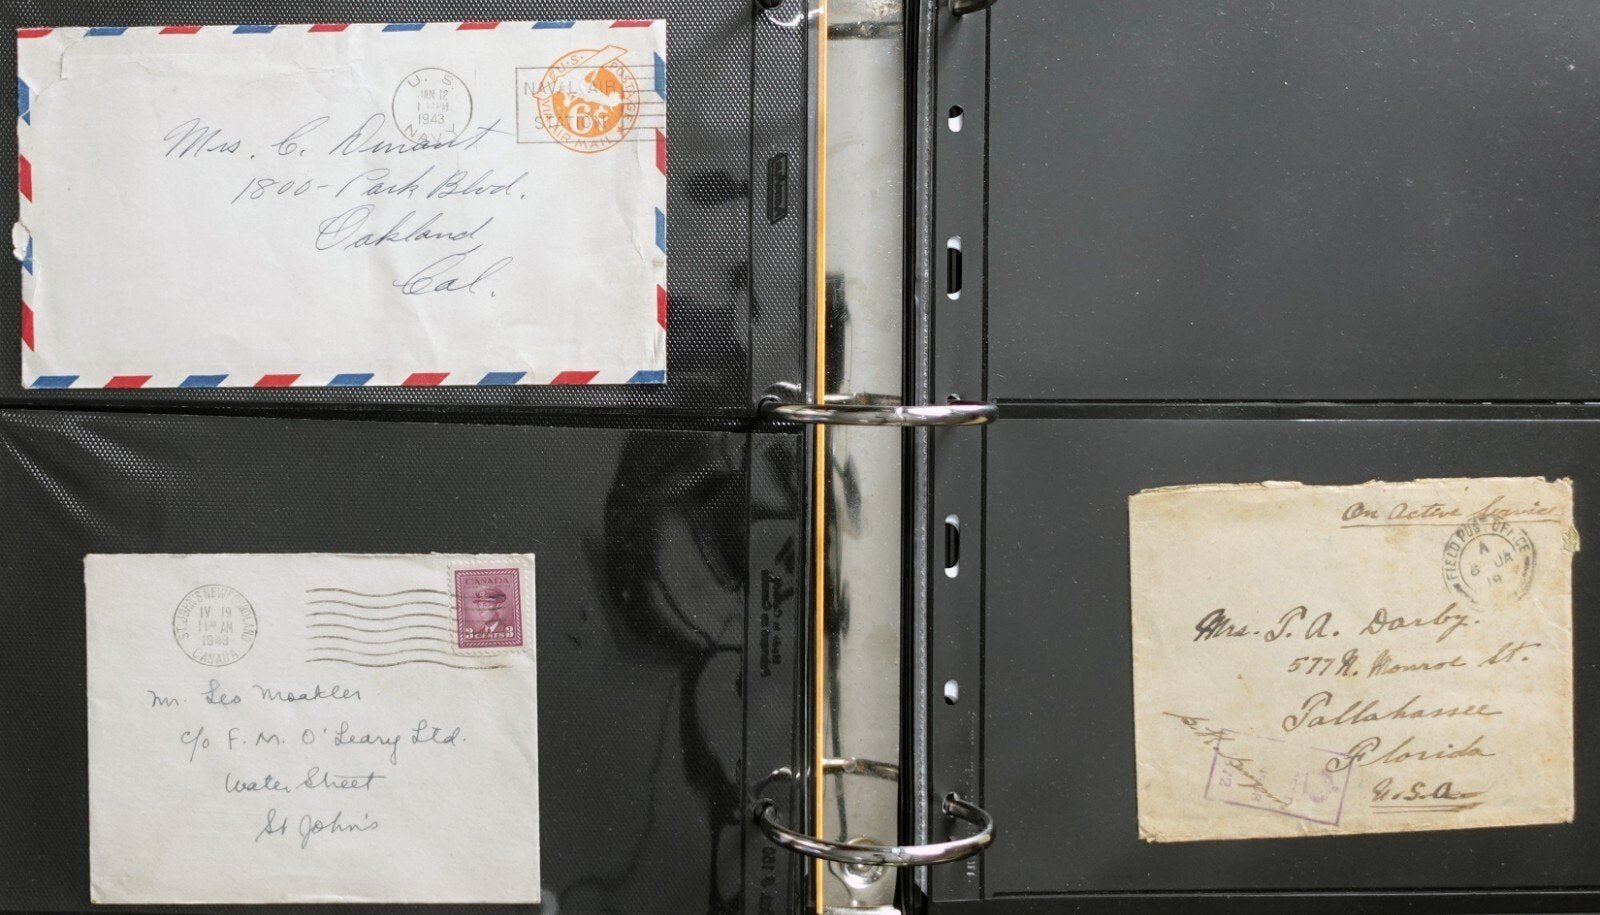 U. S. NAVY
JAN 12
1943
NAVAL AIR
STATION
U.S. POSTAGE
6¢
VIA AIR MAIL
Mrs. C. Dinant
1800 - Park Blvd.
Oakland
Cal.
ST. JOHN'S NEWFOUNDLAND
IV 19
11 AM
1949
CANADA
CANADA
3 CENTS 3
Mr. Leo Moakler
c/o F. M. O'Leary Ltd.
Water Street
St John's
On Active Service
FIELD POST OFFICE
A
6 JA
19
Mrs. T. A. Darby.
577 N. Monroe St.
Tallahassee
Florida
U.S.A.